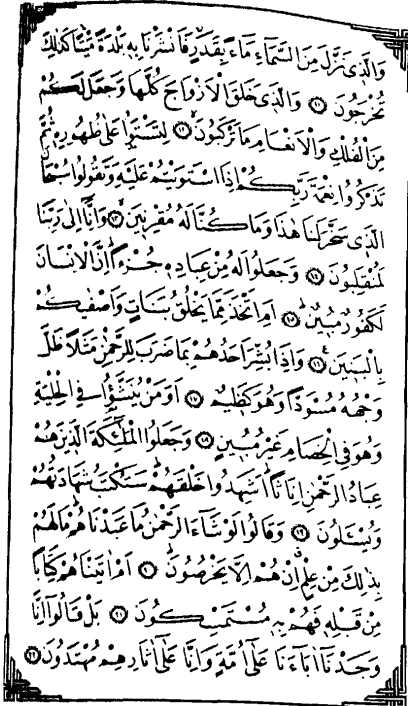 وَالَّذِى نَزَّلَ مِنَ السَّمَآءِ مَآءً بِقَدَرٍ فَاَنْشَرْنَا بِهٖ بَلْدَةً مَيْتًا كَذٰلِكَ
تُخْرَجُونَ ﴿١١﴾ وَالَّذِى خَلَقَ الْاَزْوَاجَ كُلَّهَا وَجَعَلَ لَكُمْ
مِنَ الْفُلْكِ وَالْاَنْعَامِ مَا تَرْكَبُونَ ﴿١٢﴾ لِتَسْتَوُ۫ا عَلٰى ظُهُورِهٖ ثُمَّ
تَذْكُرُوا نِعْمَةَ رَبِّكُمْ اِذَا اسْتَوَيْتُمْ عَلَيْهِ وَتَقُولُوا سُبْحَانَ
الَّذِى سَخَّرَ لَنَا هٰذَا وَمَا كُنَّا لَهُ مُقْرِنِينَ ﴿١٣﴾ وَاِنَّٓا اِلٰى رَبِّنَا
لَمُنْقَلِبُونَ ﴿١٤﴾ وَجَعَلُوا لَهُ مِنْ عِبَادِهٖ جُزْءًا اِنَّ الْاِنْسَانَ
لَكَفُورٌ مُبِينٌ ﴿١٥﴾ اَمِ اتَّخَذَ مِمَّا يَخْلُقُ بَنَاتٍ وَاَصْفٰيكُمْ
بِالْبَنِينَ ﴿١٦﴾ وَاِذَا بُشِّرَ اَحَدُهُمْ بِمَا ضَرَبَ لِلرَّحْمٰنِ مَثَلًا ظَلَّ
وَجْهُهُ مُسْوَدًّا وَهُوَ كَظِيمٌ ﴿١٧﴾ اَوَمَنْ يُنَشَّؤُا فِى الْحِلْيَةِ
وَهُوَ فِى الْخِصَامِ غَيْرُ مُبِينٍ ﴿١٨﴾ وَجَعَلُوا الْمَلٰٓئِكَةَ الَّذِينَ هُمْ
عِبَادُ الرَّحْمٰنِ اِنَاثًا اَشَهِدُوا خَلْقَهُمْ سَتُكْتَبُ شَهَادَتُهُمْ
وَيُسْـَٔلُونَ ﴿١٩﴾ وَقَالُوا لَوْ شَآءَ الرَّحْمٰنُ مَا عَبَدْنَاهُمْ مَا لَهُمْ
بِذٰلِكَ مِنْ عِلْمٍ اِنْ هُمْ اِلَّا يَخْرُصُونَ ﴿٢٠﴾ اَمْ اٰتَيْنَاهُمْ كِتَابًا
مِنْ قَبْلِهٖ فَهُمْ بِهٖ مُسْتَمْسِكُونَ ﴿٢١﴾ بَلْ قَالُٓوا اِنَّا
وَجَدْنَٓا اٰبَٓاءَنَا عَلٰٓى اُمَّةٍ وَاِنَّا عَلٰٓى اٰثَارِهِمْ مُهْتَدُونَ ﴿٢٢﴾